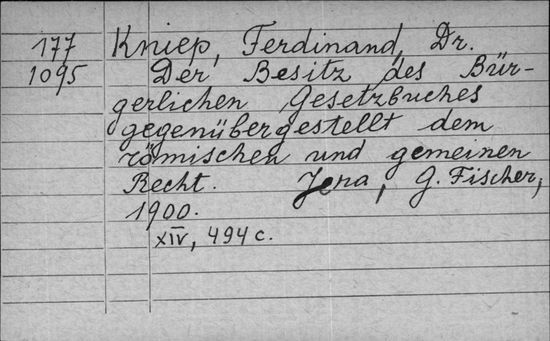 177 Kniep, Ferdinand, Dr.
1095 Der Besitz des Bür-
gerlichen Gesetzbuches
gegenübergestellt dem
römischen und gemeinen
Recht. Jena, G. Fischer,
1900.
XIV, 494 c.